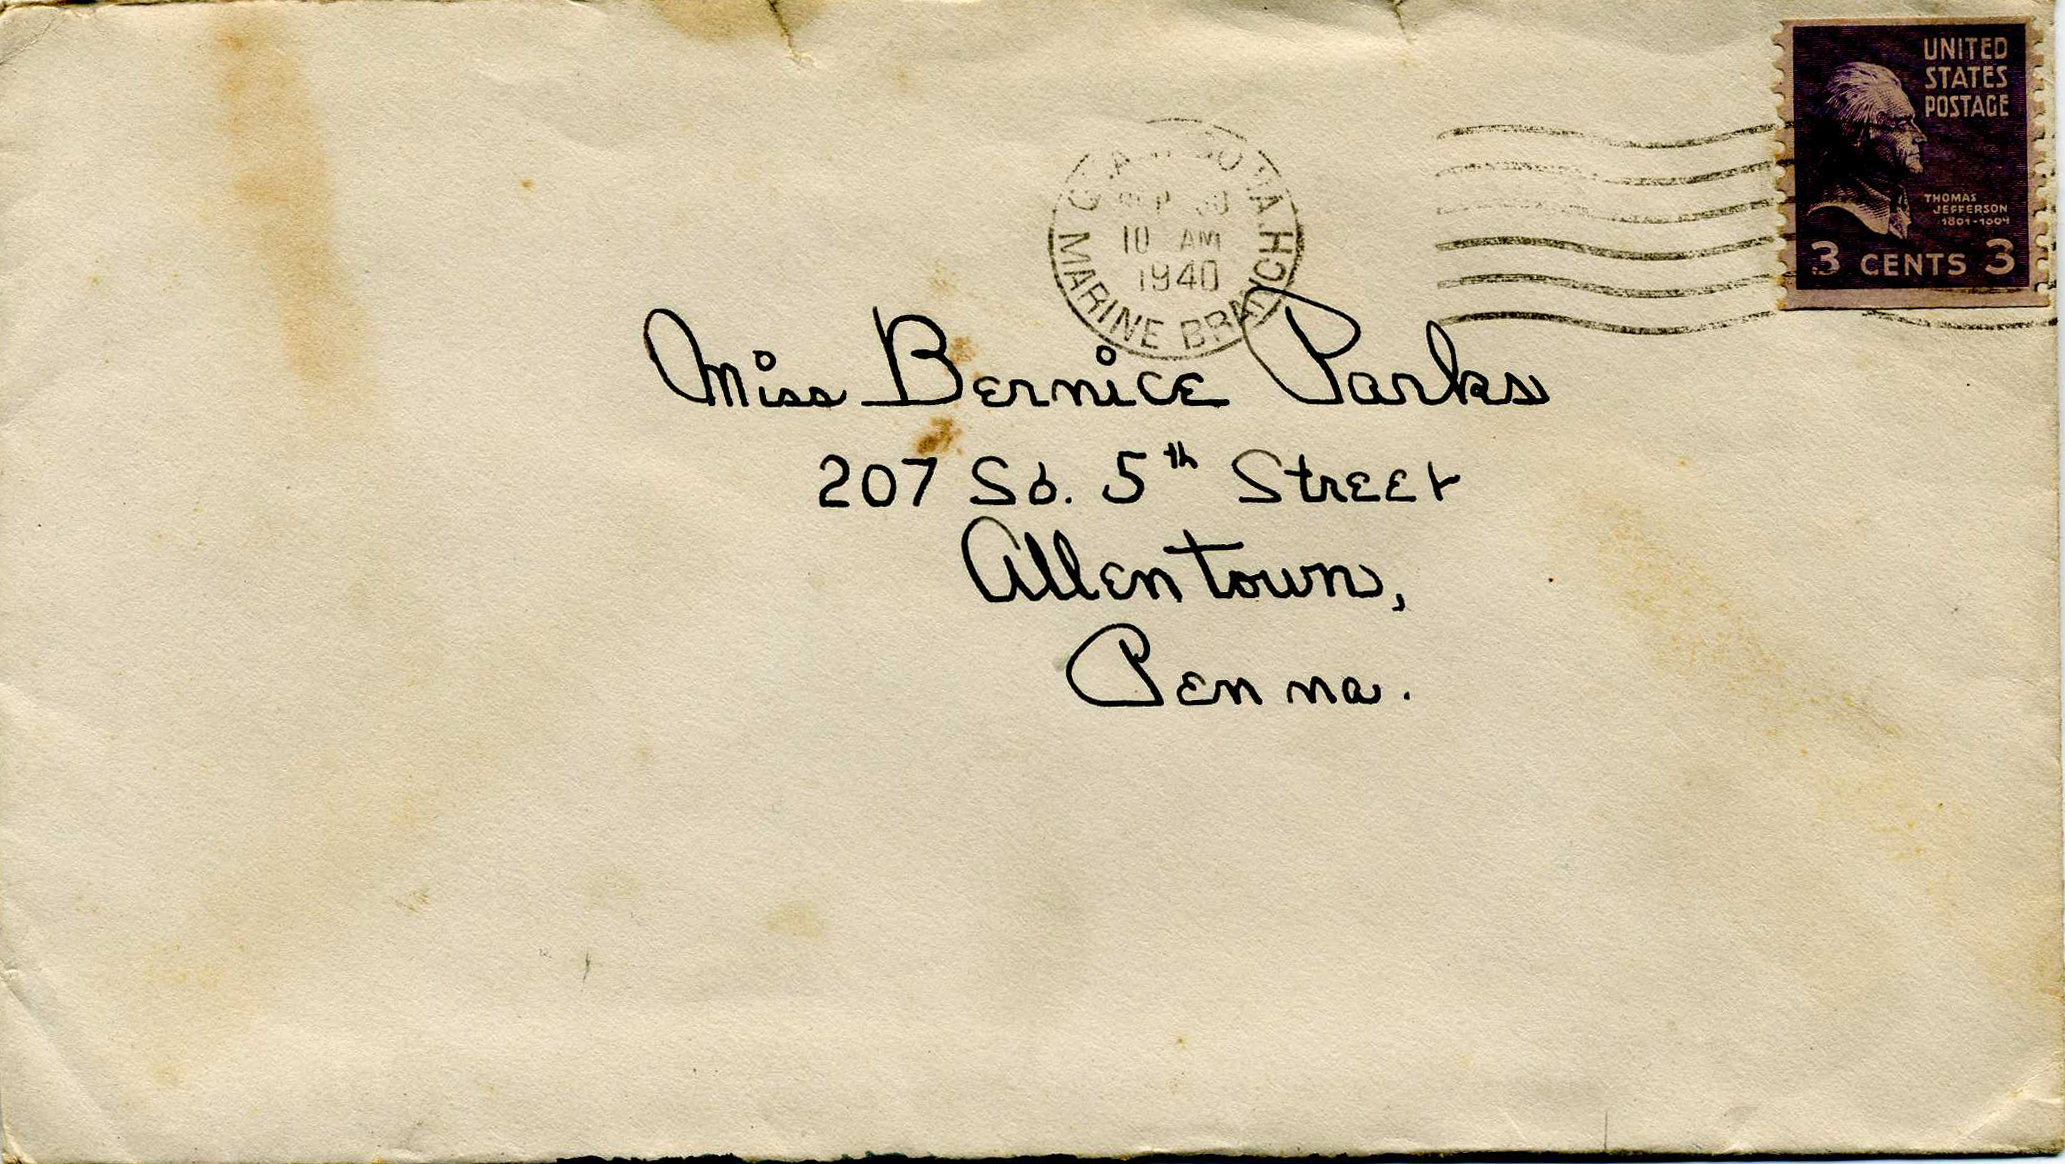 UNITED
STATES
POSTAGE
THOMAS
JEFFERSON
3 CENTS 3
10 AM
1940
MARINE BRANCH
Miss Bernice Parks
207 So. 5th Street
Allentown,
Penna.